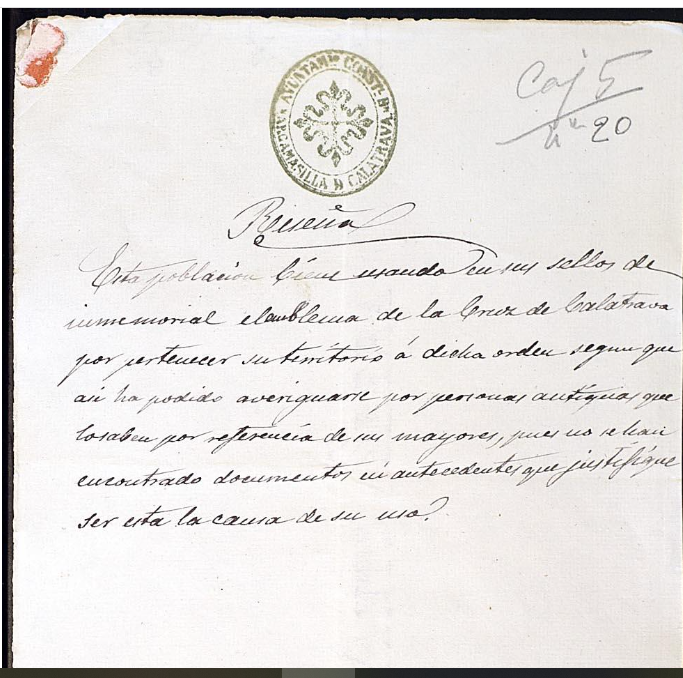 AYUNTAM.to CONST.L D.
ARGAMASILLA D CALATRAVA
Caj 5
nº 20
Reseña
Esta poblacion biene usando en sus sellos de
inmemorial el emblema de la Cruz de Calatrava
por pertenecer su territorio á dicha orden segun que
asi ha podido averiguarse por personas antiguas que
lo saben por referencia de sus mayores, pues no se han
encontrado documentos ni antecedentes que justifique
ser esta la causa de su uso.